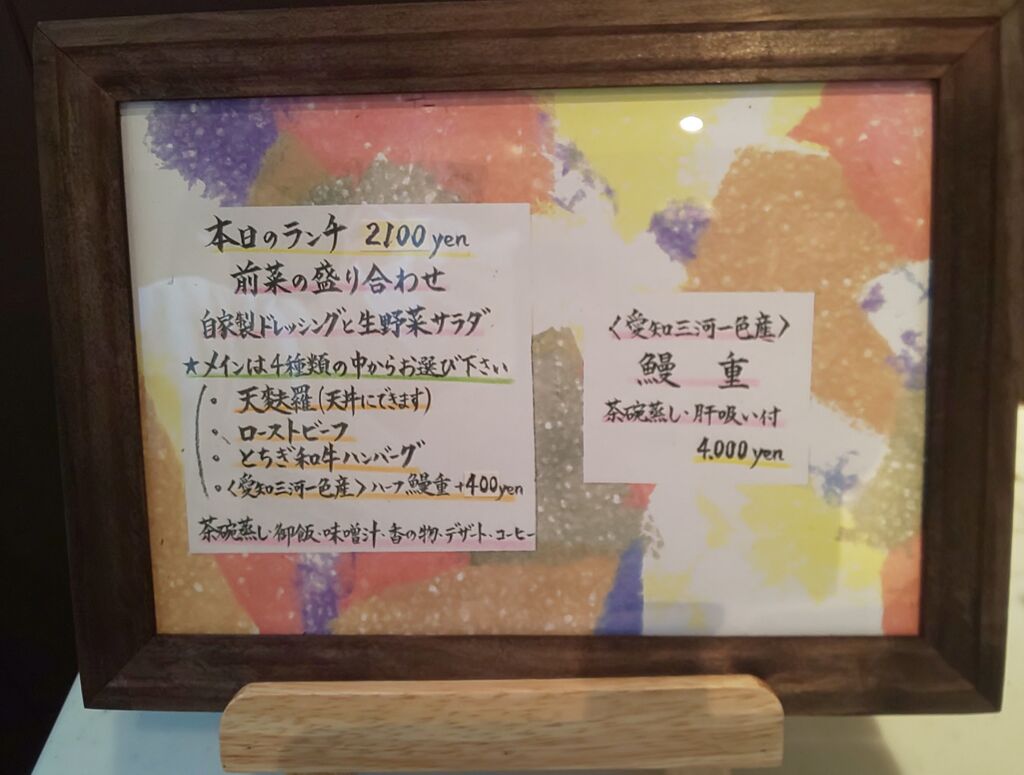 本日のランチ 2100 yen
前菜の盛り合わせ
自家製ドレッシングと生野菜サラダ
★メインは4種類の中からお選び下さい
・ 天麩羅(天丼にできます)
・ ローストビーフ
・ とちぎ和牛ハンバーグ
・〈愛知三河一色産〉ハーフ鰻重+400yen
茶碗蒸し・御飯・味噌汁・香の物・デザート・コーヒー
〈愛知三河一色産〉
鰻 重
茶碗蒸し・肝吸い付
4.000 yen